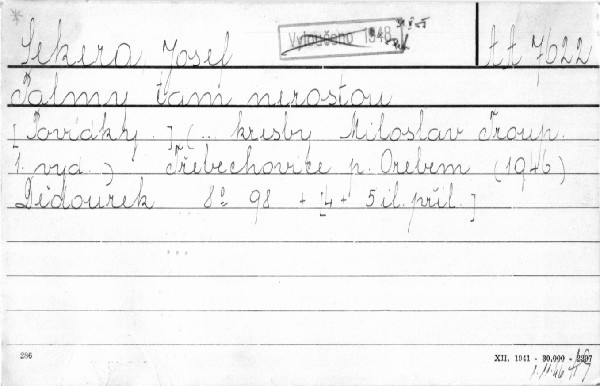 Sekera Josef
Vyloučeno 1948
tt 7622
Palmy tam nerostou
[Povídky.] (... kresby Miloslav Troup.
1. vyd.) Třebechovice p. Orebem (1946)
Dědourek 8° 98 + [4 + 5 il. příl.]
286
XII. 1941 - 30.000 - 2397